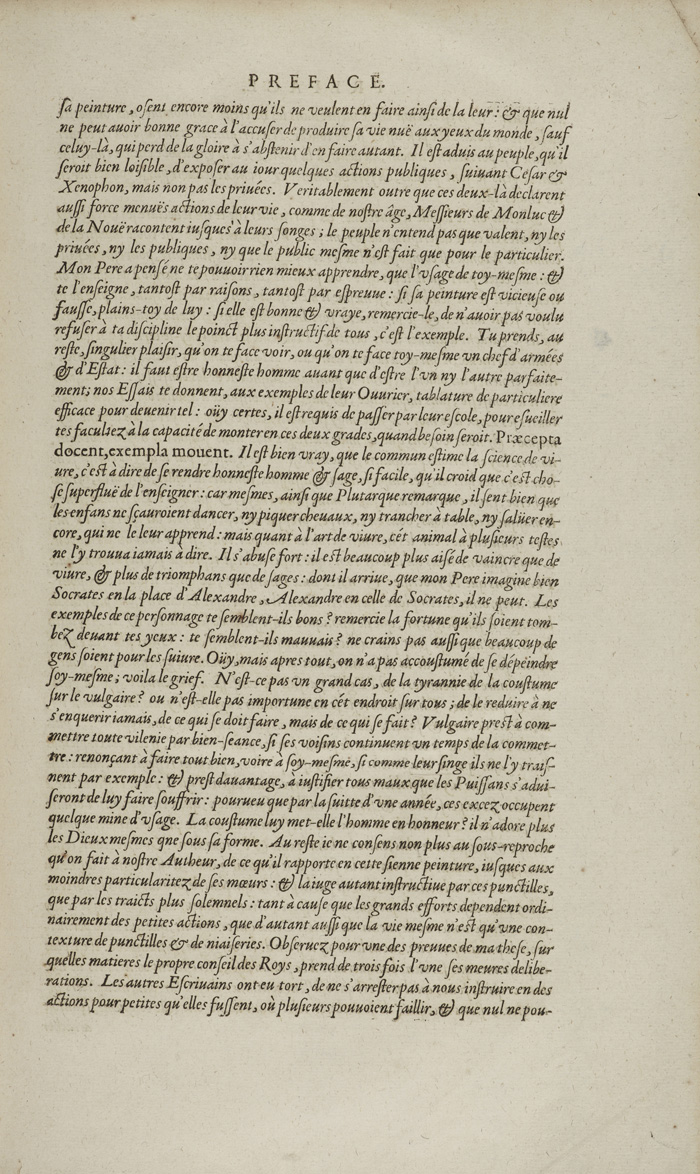 PREFACE.
ſa peinture, oſent encore moins qu'ils ne veulent en faire ainſi de la leur: & que nul
ne peut auoir bonne grace à l'accuſer de produire ſa vie nuë aux yeux du monde, ſauf
celuy-là, qui perd de la gloire à s'abſtenir d'en faire autant. Il eſt aduis au peuple, qu'il
ſeroit bien loiſible, d'expoſer au iour quelques actions publiques, ſuiuant Ceſar &
Xenophon, mais non pas les priuées. Veritablement outre que ces deux-là declarent
auſſi force menuës actions de leur vie, comme de noſtre âge, Meſſieurs de Monluc &
de la Nouë racontent iuſques à leurs ſonges; le peuple n'entend pas que valent, ny les
priuées, ny les publiques, ny que le public meſme n'eſt fait que pour le particulier.
Mon Pere a penſé ne te pouuoir rien mieux apprendre, que l'vſage de toy-meſme: &
te l'enſeigne, tantoſt par raiſons, tantoſt par eſpreuue: ſi ſa peinture eſt vicieuse ou
fauſſe, plains-toy de luy: ſi elle eſt bonne & vraye, remercie-le, de n'auoir pas voulu
refuſer à ta diſcipline le poinct plus inſtructif de tous, c'eſt l'exemple. Tu prends, au
reſte, ſingulier plaiſir, qu'on te face voir, ou qu'on te face toy-meſme vn chef d'armées
& d'Eſtat: il faut eſtre honneſte homme auant que d'eſtre l'vn ny l'autre parfaite-
ment; nos Eſſais te donnent, aux exemples de leur Ouurier, tablature de particuliere
efficace pour deuenir tel: oüy certes, il eſt requis de paſſer par leur eſcole, pour eſueiller
tes facultez à la capacité de monter en ces deux grades, quand beſoin ſeroit. Præcepta
docent, exempla mouent. Il eſt bien vray, que le commun eſtime la ſcience de vi-
ure, c'eſt à dire de ſe rendre honneſte homme & ſage, ſi facile, qu'il croid que c'eſt cho-
ſe ſuperfluë de l'enſeigner: car meſmes, ainſi que Plutarque remarque, il ſent bien que
les enfans ne ſçauroient dancer, ny piquer cheuaux, ny trancher à table, ny ſalüer en-
core, qui ne le leur apprend: mais quant à l'art de viure, cét animal à pluſieurs teſtes
ne l'y trouua iamais à dire. Il s'abuſe fort: il eſt beaucoup plus aiſé de vaincre que de
viure, & plus de triomphans que de ſages: dont il arriue, que mon Pere imagine bien
Socrates en la place d'Alexandre, Alexandre en celle de Socrates, il ne peut. Les
exemples de ce perſonnage te ſemblent-ils bons? remercie la fortune qu'ils ſoient tom-
bez deuant tes yeux: te ſemblent-ils mauuais? ne crains pas auſſi que beaucoup de
gens ſoient pour les ſuiure. Oüy, mais apres tout, on n'a pas accouſtumé de ſe dépeindre
ſoy-meſme; voila le grief. N'eſt-ce pas vn grand cas, de la tyrannie de la couſtume
ſur le vulgaire? ou n'eſt-elle pas importune en cét endroit ſur tous; de le reduire à ne
s'enquerir iamais, de ce qui ſe doit faire, mais de ce qui ſe fait? Vulgaire preſt à com-
mettre toute vilenie par bien-ſeance, ſi ſes voiſins continuent vn temps de la commet-
tre: renonçant à faire tout bien, voire à ſoy-meſme, ſi comme leur ſinge ils ne l'y traiſ-
nent par exemple: & preſt dauantage, à iuſtifier tous maux que les Puiſſans s'adui-
ſeront de luy faire ſouffrir: pourueu que par la ſuitte d'vne année, ces excez occupent
quelque mine d'vſage. La couſtume luy met-elle l'homme en honneur? il n'adore plus
les Dieux meſmes que ſous ſa forme. Au reſte ie ne conſens non plus au ſous-reproche
qu'on fait à noſtre Autheur, de ce qu'il rapporte en cette ſienne peinture, iuſques aux
moindres particularitez de ſes mœurs: & la iuge autant inſtructiue par ces punctilles,
que par les traicts plus ſolemnels: tant à cauſe que les grands efforts dependent ordi-
nairement des petites actions, que d'autant auſſi que la vie meſme n'eſt qu'vne con-
texture de punctilles & de niaiſeries. Obſeruez pour vne des preuues de ma theſe, ſur
quelles matieres le propre conſeil des Roys, prend de trois fois l'vne ſes meures delibe-
rations. Les autres Eſcriuains ont eu tort, de ne s'arreſter pas à nous inſtruire en des
actions pour petites qu'elles fuſſent, où pluſieurs pouuoient faillir, & que nul ne pou-